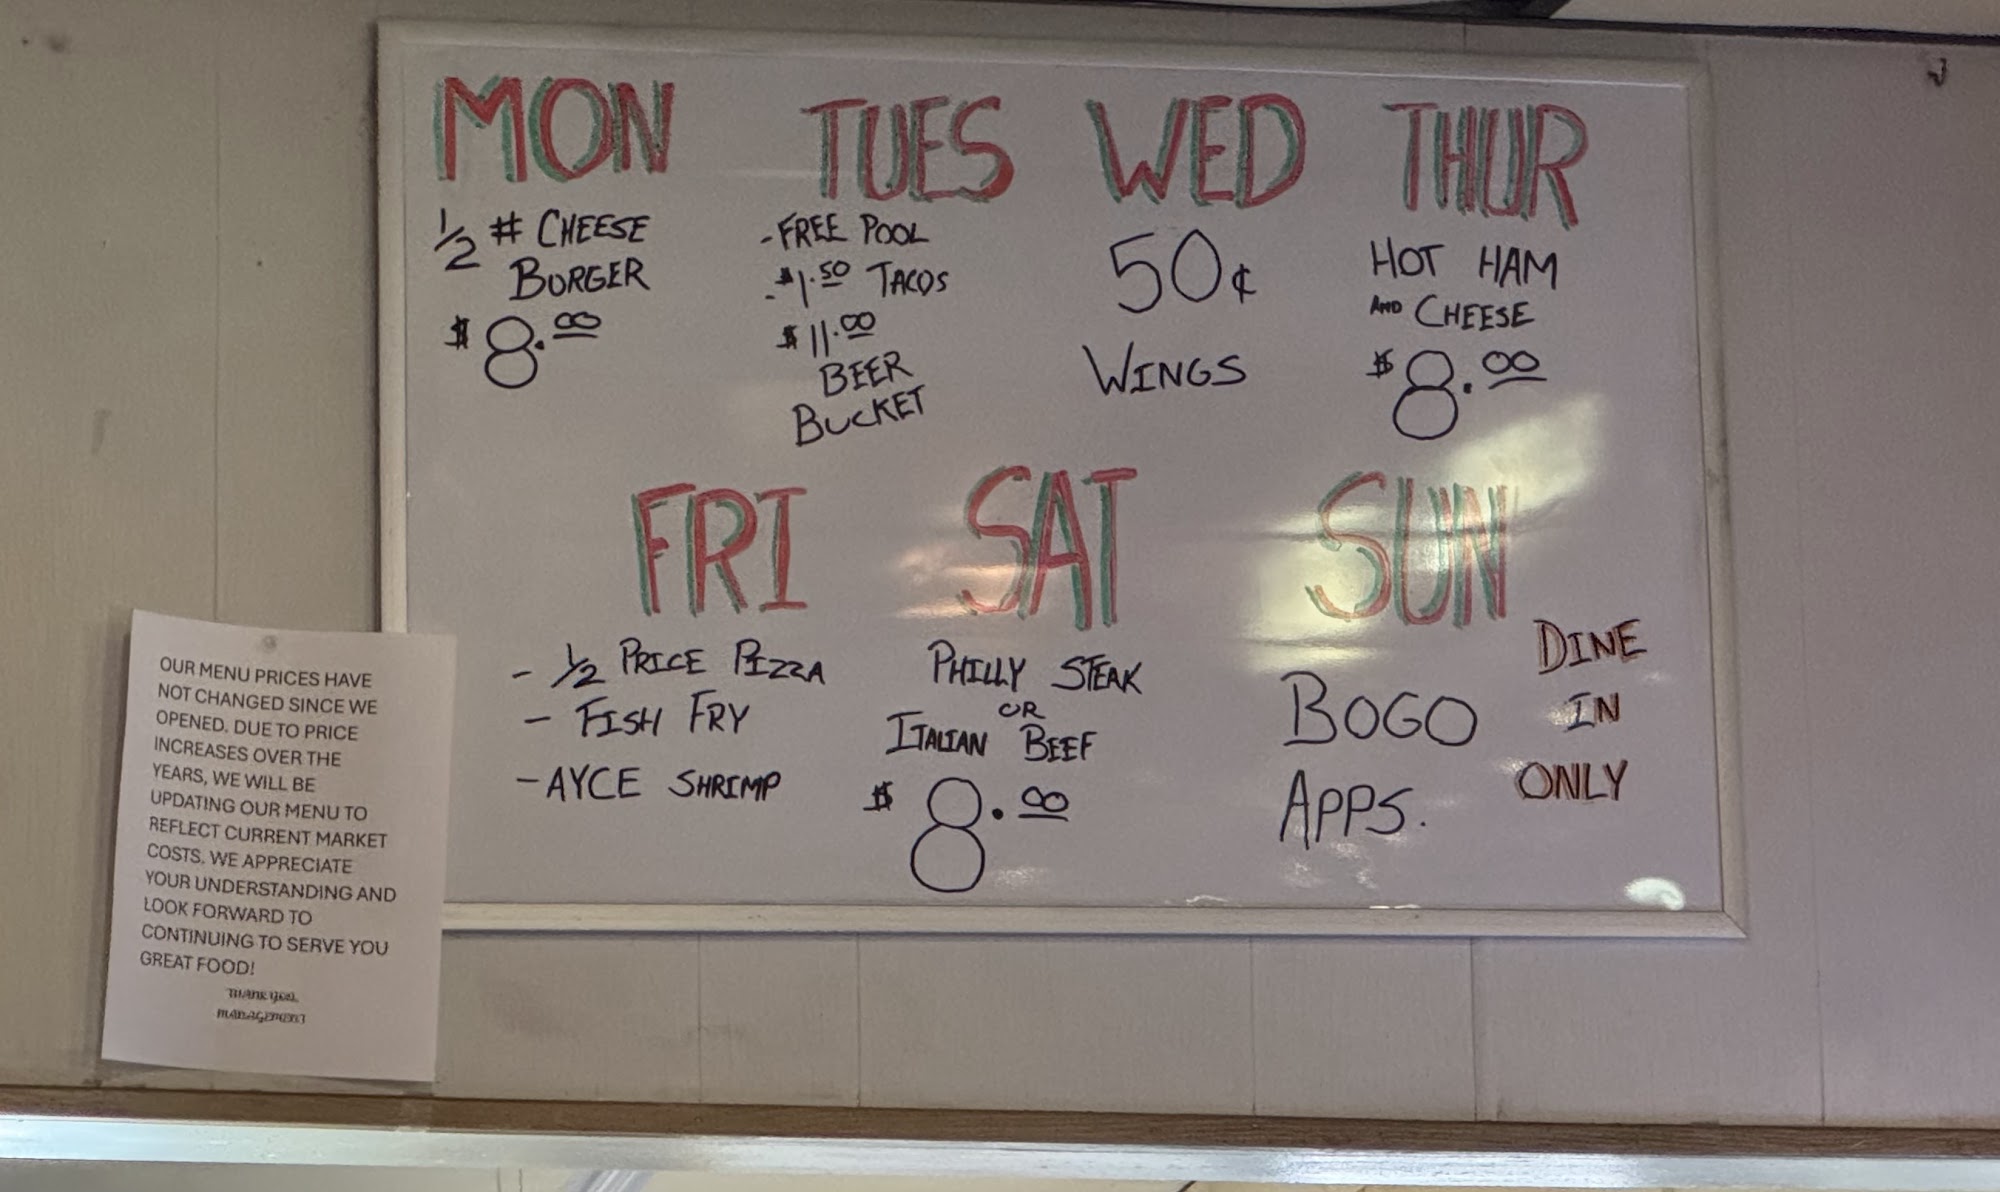 MON
1/2 # CHEESE
BURGER
$8.00
TUES
- FREE POOL
- $1.50 TACOS
$11.00
BEER
BUCKET
WED
50¢
WINGS
THUR
HOT HAM
AND CHEESE
$8.00
FRI
- 1/2 PRICE PIZZA
- FISH FRY
- AYCE SHRIMP
SAT
PHILLY STEAK
OR
ITALIAN BEEF
$8.00
SUN
BOGO
APPS.
DINE
IN
ONLY
OUR MENU PRICES HAVE
NOT CHANGED SINCE WE
OPENED. DUE TO PRICE
INCREASES OVER THE
YEARS, WE WILL BE
UPDATING OUR MENU TO
REFLECT CURRENT MARKET
COSTS. WE APPRECIATE
YOUR UNDERSTANDING AND
LOOK FORWARD TO
CONTINUING TO SERVE YOU
GREAT FOOD!
THANK YOU,
MANAGEMENT